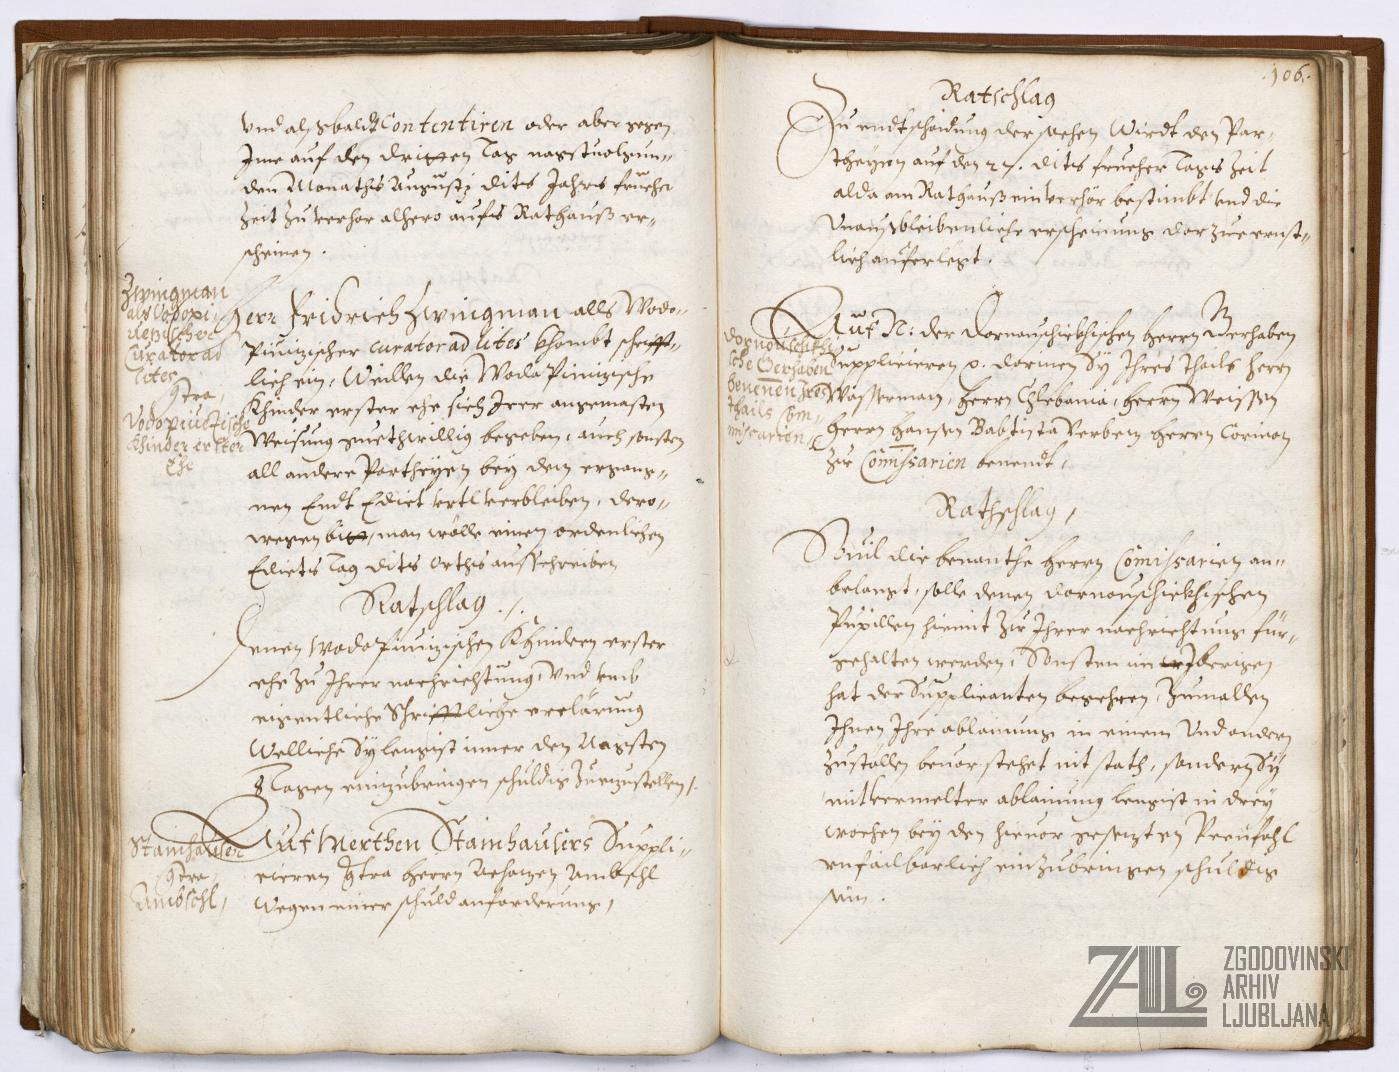 Und alßbaldt Contentiren oder aber gegen
Ime auf den dritten Tag negstuolgun-
den Monaths Augusti dits Jahrs frueher
Zeit Zu verhör alhero aufs Rathauß er-
scheinen.
Zwingman
als Vodopi-
uezischer
Curator ad
lites
Contra
Vodopiuetische
Khinder erster
Ehe
Herr Fridrich Zwingman alls Wodo-
Piuizischer curator ad lites khombt schrifft-
lich ein, Weillen die Wodo Piuizische
Khinder erster ehe sich Irer angemasten
Weisung guethwillig begeben, auch sonsten
all andere Partheyen bey dem ergange-
nen Endt Edict Urtl verbleiben, dero-
wegen bitt, man wölle einen ordenlichen
Edicts Tag dits Orths ausschreiben
Ratschlag
Denen Wodopiuizischen Khindern erster
ehe Zu Ihrer nachrichtung, Und umb
eigentliche Schrifftliche erclärung
Welliche Sy lengist inner den Negsten
8 Tagen einzubringen schuldig Zuezustellen.
Stainhauser
Contra
Ambschl
Auf Merthen Stainhausers Suppli-
cieren Contra Herrn Ambschl
Wegen einer schuld anforderung,
.106.
Ratschlag
Zu endtschaidung der sachen Wirdt den Par-
theyen auf den 27. dits frueher Tags Zeit
alda am Rathauß ein verhör bestimbt Und die
Unaußbleibenliche erscheinung darzue ernst-
lich auferlegt.
Dornouschekhi-
sche Gerhaben
benennen Ires
thails Com-
missarien
Auf N: der Dornauschekhischen Herrn Gerhaben
Supplicieren darinen Sy Ihres thails Herrn
Wasserman, Herrn Chlebaina, Herrn Weissen
Herrn Hansen Babtista Verbez Herrn
zu Comissarien benendt,
Rathschlag,
Souil die benanthe Herrn Comissarien an-
belangt, solle denen dornauschekhischen
Pupillen hiemit Zu Ihrer nachrichtung für-
gehalten werden, Sonsten im Iberigen
hat der Supplicanten begehren, Zumallen
Ihnen Ihre ablainung in einem Und andern
Zustöllen beuor stehet nit stath, sondern Sy
mit vermelter ablainung lengist in drey
wochen bey den hieuor gesezten Peenfahl
vnfailbarlich einzubringen schuldig
sein.
ZAL
ZGODOVINSKI
ARHIV
LJUBLJANA